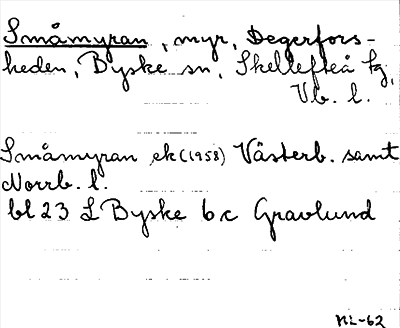 Småmyran, myr, Degerfors-
heden, Byske sn, Skellefteå tg,
Vb. l.
Småmyran ek (1958) Västerb. samt
Norrb. l.
bl 23 L Byske 6 c Gravlund
NL-62